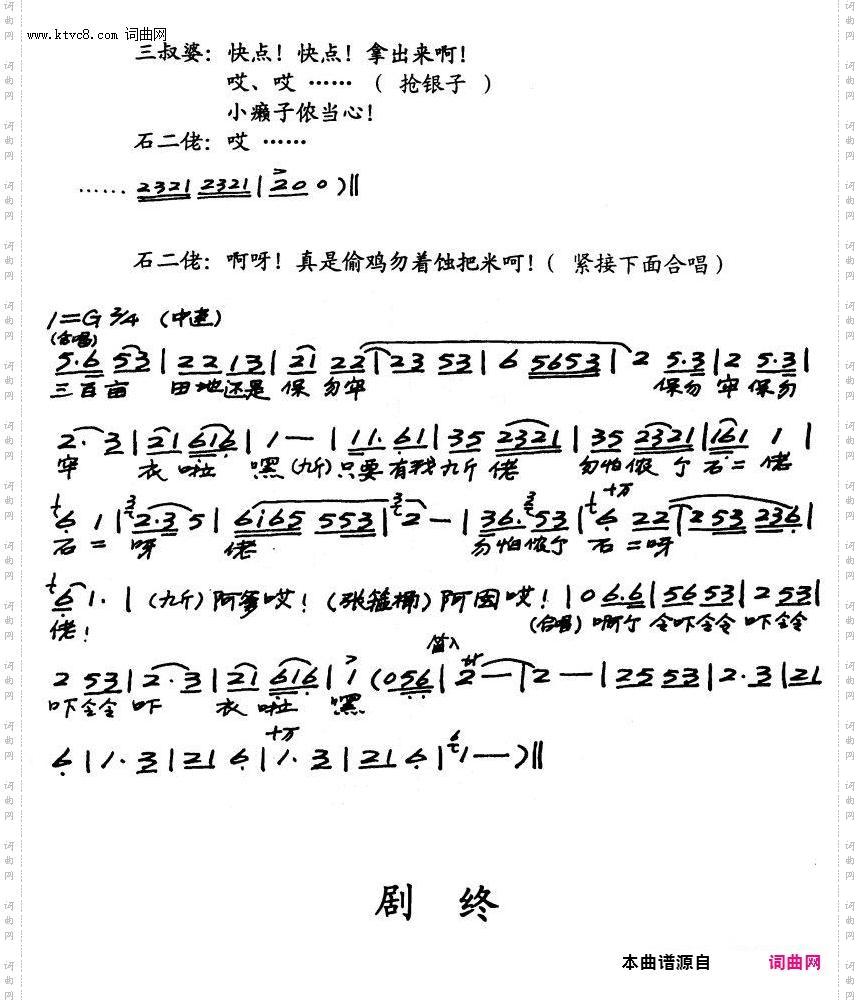 www.ktvc8.com 词曲网
三叔婆：快点！快点！拿出来啊！
哎、哎 ……（ 抢银子 ）
小癞子侬当心！
石二佬：哎 ……
…… 2321 2321 | 2 0 0 ) ‖
石二佬：啊呀！真是偷鸡勿着蚀把米呵！（ 紧接下面合唱）
1=G 2/4 (中速)
(合唱)
5.6 53 | 22 13 | 21 22 | 23 53 | 6 5653 | 2 5.3 | 2 5.3 |
三百亩 田地还是 保 勿牢 保勿 牢 保勿
2. 3 | 21 616 | 1 — | 11. 61 | 35 2321 | 35 2321 | 161 1 |
牢 衣 啦 嘿 (九斤)只要有我九斤 佬 勿怕侬 个 石二 佬
6 1 | 2.3 5 | 6165 553 | 2 — | 36. 53 | 6 22 | 253 236 |
石二 呀 佬 勿怕侬个 石二呀
6 1. | (九斤) 阿爹哎！(张箍桶) 阿囡哎！ | 0 6.6 | 56 53 | 2 53 |
佬！ (合唱) 啊个 令吓令令 吓令令
2 53 | 2.3 | 21 616 | 1 (056 | 2 — | 2 — | 25 53 | 2.3 | 21
吓令令 吓 衣 啦 嘿
6 | 1. 3 | 21 6 | 1. 3 | 21 6 | 1 — ) ‖
剧 终
本曲谱源自 词曲网